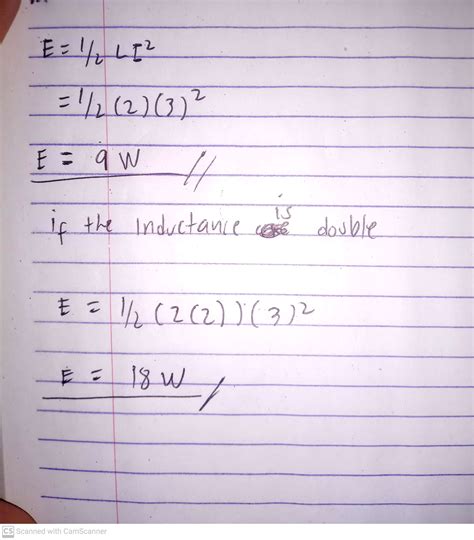 E = 1/2 LI²
= 1/2 (2)(3)²
E = 9 W //
if the inductance is double
E = 1/2 (2(2))(3)²
E = 18 W /
CS Scanned with CamScanner